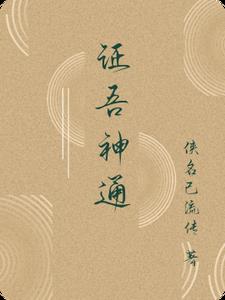 证吾神通
侠名已流传 著